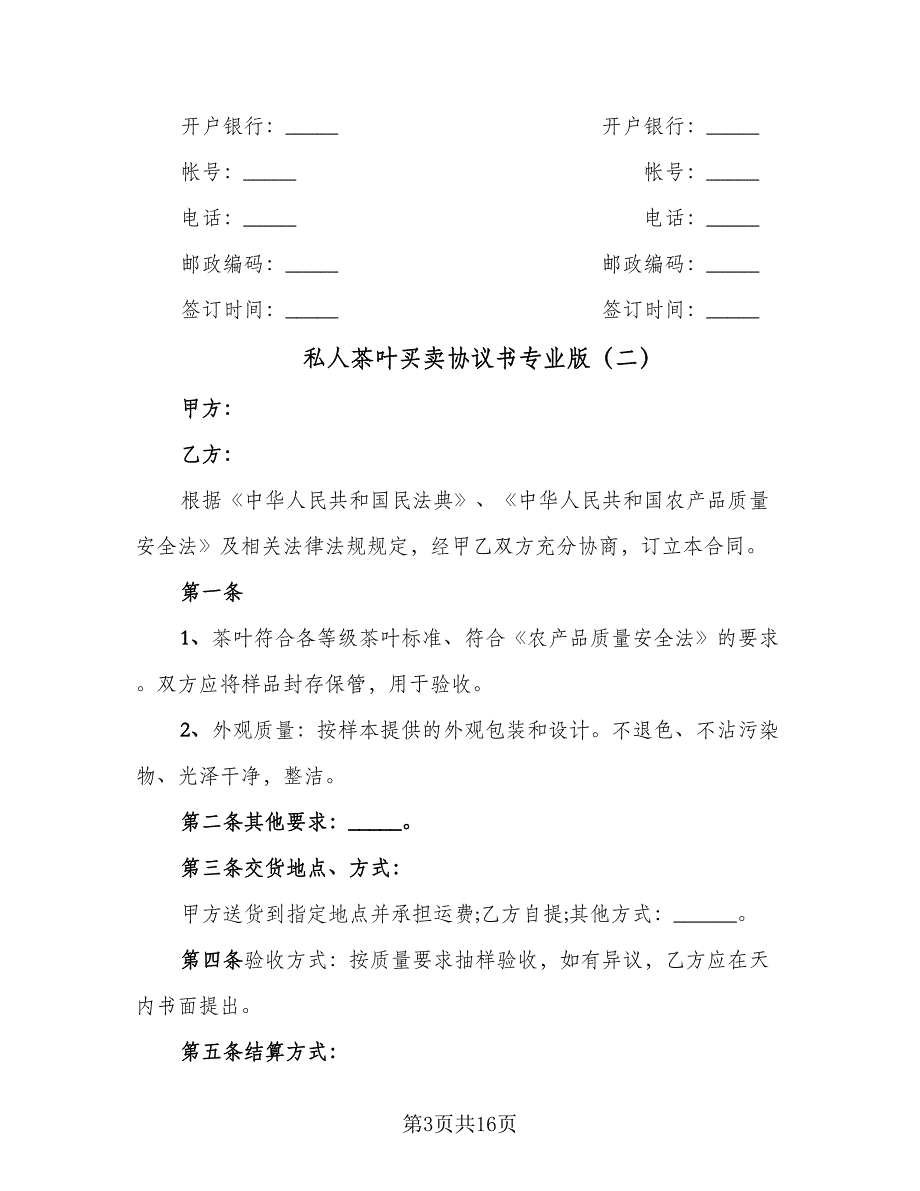 开户银行：_____ 开户银行：_____
帐号：_____ 帐号：_____
电话：_____ 电话：_____
邮政编码：_____ 邮政编码：_____
签订时间：_____ 签订时间：_____
私人茶叶买卖协议书专业版（二）
甲方：
乙方：
根据《中华人民共和国民法典》、《中华人民共和国农产品质量
安全法》及相关法律法规规定，经甲乙双方充分协商，订立本合同。
第一条
1、茶叶符合各等级茶叶标准、符合《农产品质量安全法》的要求
。双方应将样品封存保管，用于验收。
2、外观质量：按样本提供的外观包装和设计。不退色、不沾污染
物、光泽干净，整洁。
第二条其他要求：_____。
第三条交货地点、方式：
甲方送货到指定地点并承担运费;乙方自提;其他方式：______。
第四条验收方式：按质量要求抽样验收，如有异议，乙方应在天
内书面提出。
第五条结算方式：
第3页共16页